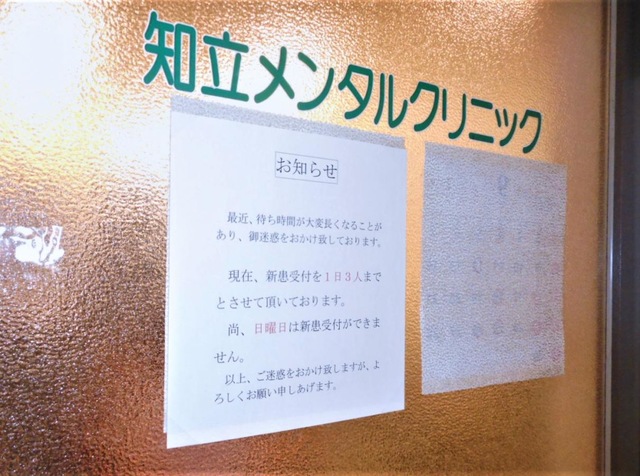 知立メンタルクリニック
お知らせ
最近、待ち時間が大変長くなることが
あり、御迷惑をおかけ致しております。
現在、新患受付を1日3人まで
とさせて頂いております。
尚、日曜日は新患受付ができま
せん。
以上、ご迷惑をおかけ致しますが、よ
ろしくお願い申しあげます。